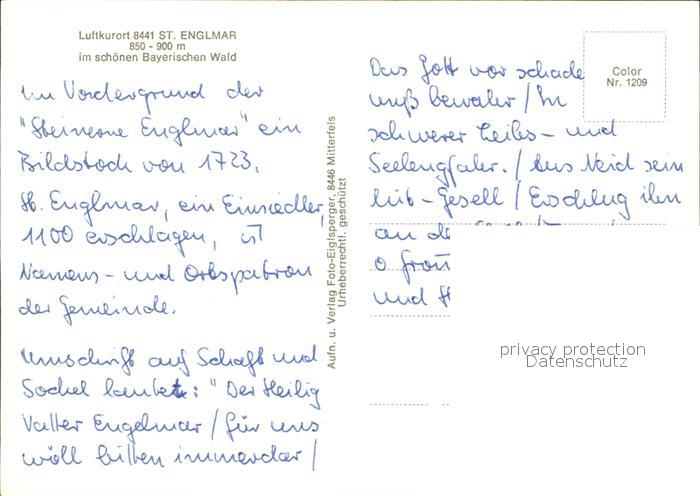 Luftkurort 8441 ST. ENGLMAR
850 - 900 m
im schönen Bayerischen Wald
Im Vordergrund der
"Steinerne Englmar" ein
Bildstock von 1723.
St. Englmar, ein Einsiedler,
1100 erschlagen, ist
Namens- und Ortspatron
der Gemeinde.
Umschrift auf Schaft und
Sockel lautet: "Der Heilig
Vatter Engelmar / für uns
wöll bitten immerdar /
Aufn. u. Verlag Foto-Eiglsperger, 8446 Mitterfels
Urheberrechtl. geschützt
Color
Nr. 1209
Das Gott vor schade
unß bewahr / In
schwerer Leibs- und
Seelengfahr. / Aus Neid sein
Mit-Gesell / Erschlug ihn
an de
o
und
privacy protection
Datenschutz